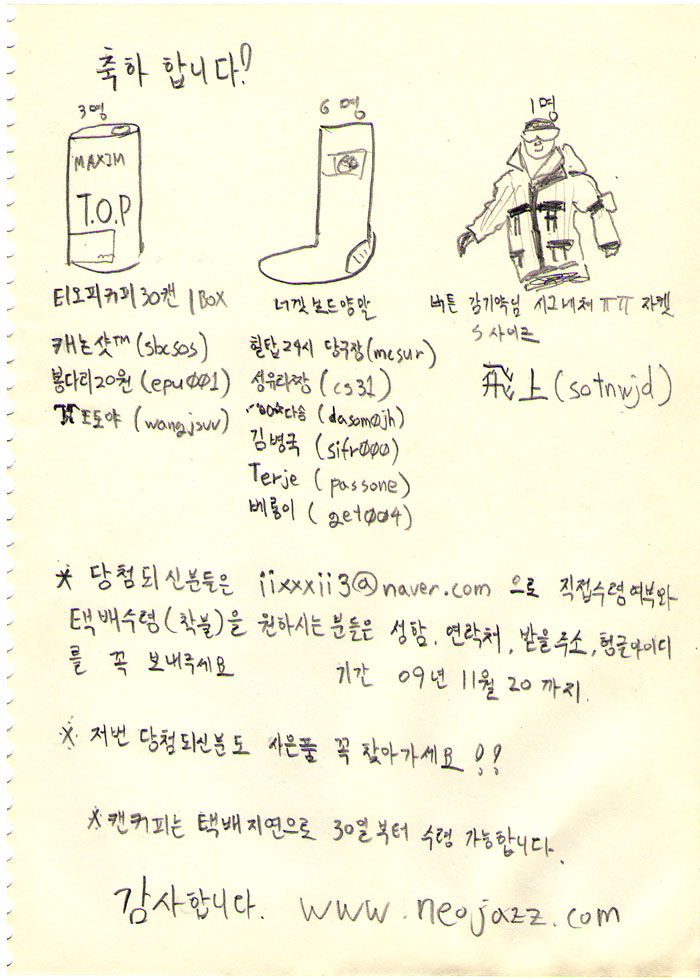 축하 합니다!
3명
6명
1명
MAXIM
T.O.P
티오피커피 30캔 1BOX
너겟 보드양말
버튼 감기약님 시그네쳐 ㅠㅠ 자켓
S 사이즈
캐논샷™ (sbcsos)
봉다리20원 (epu001)
도야 (wangjsvv)
헐탑24시 당구장 (mcsur)
성유리짱 (cs31)
다솜 (dasom0jh)
김병국 (sifr000)
Terje (passone)
베롱이 (get004)
飛上 (sotnwjd)
* 당첨되신분들은 iixxxii3@naver.com 으로 직접수령여부와
택배수령(착불)을 원하시는 분들은 성함, 연락처, 받을주소, 헝글아이디
를 꼭 보내주세요 기간 09년 11월 20 까지.
* 저번 당첨되신분도 사은품 꼭 찾아가세요 !!
* 캔커피는 택배지연으로 30일부터 수령 가능합니다.
감사합니다. www.neojazz.com